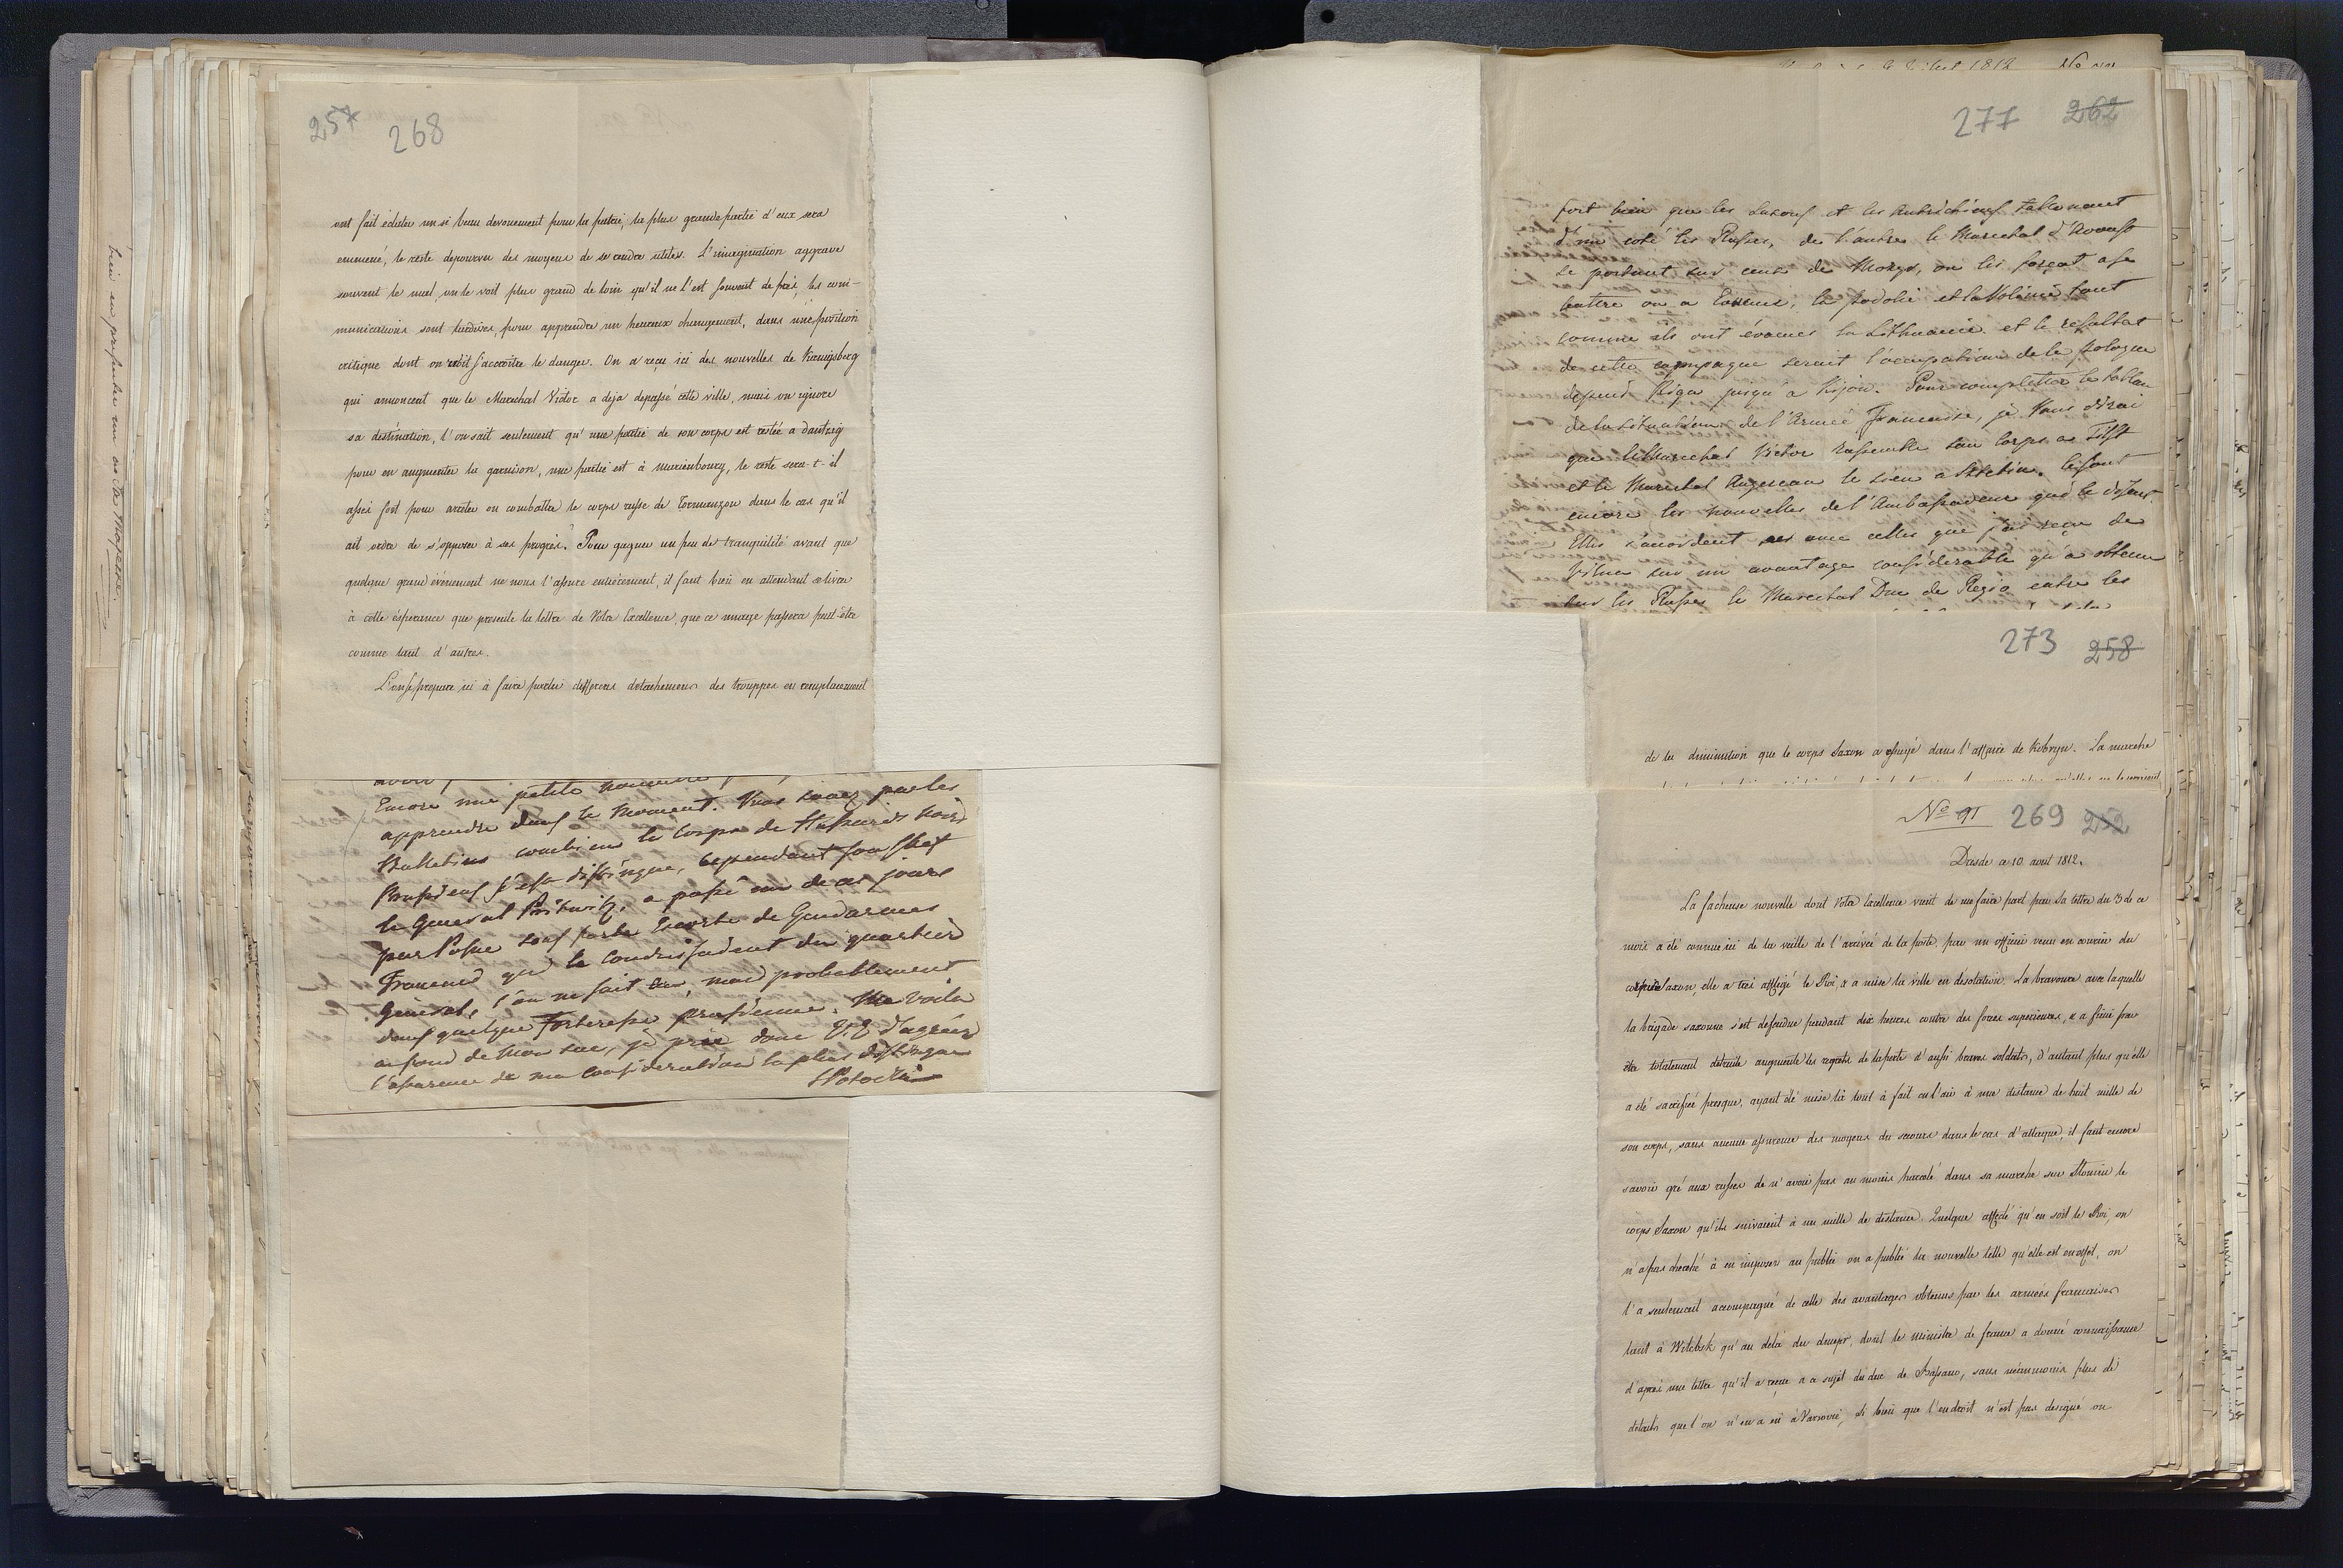 257 268
ont fait éclater un si beau devouement pour la patrie, la plus grande partie d'eux sera
emmené, le reste depourvu des moyens de se rendre utiles. L'imagination aggrave
souvent le mal, on le voit plus grand de loin qu'il ne l'est souvent de près, les com-
munications sont tardives, pour apprendre un heureux changement, dans une position
critique dont on voit s'accroitre le danger. On a reçu ici des nouvelles de Kœnigsberg
qui annoncent que le Marechal Victor a deja depassé cette ville, mais on ignore
sa destination, l'on sait seulement qu'une partie de son corps est restée a Dantzig
pour en augmenter la garnison, une partie est à Marienbourg, le reste sera-t-il
assez fort pour arreter ou combattre le corps russe de Tormanzow dans le cas qu'il
ait ordre de s'opposer à ses progrès. Pour gagner un peu de tranquilité avant que
quelque grand évènement ne nous l'assure entièrement, il faut bien en attendant se livrer
à cette ésperance que presente la lettre de Votre Excellence, que ce nuage passera peut-être
comme tant d'autres.
L'on se prepare ici à faire partir differens detachemens des trouppes en remplacement
Encore une petite nouvelle
apprendre dans le moment. Vous savez par les
Bulletins combien le Corps de Hussards noirs
Prussiens s'est distingué, cependant son chef
le General Pritwitz, a passé un de ces jours
par Posne sous forte Escorte de Gendarmes
Francais qui le conduisaient du quartier
General, l'on ne sait où, mais probablement
dans quelque Forteresse prussienne. Me voila
au fond de mon sac, je prie donc V.E. d'agréer
l'assurance de ma consideration la plus distinguée
SPotocki
bien en présenter un à Sa Majesté.
1812 No
277 262
fort bien que les Saxons et les Autrichiens tallonnant
d'un coté les Russes, de l'autre le Marechal d'Avoust
se portant sur ceux de Mozyr, on les forçat a se
battre ou a Evacuer, la Podolie et la Volinie tout
comme ils ont évacué la Lithuanie et le resultat
de cette campagne serait l'occupation de la Pologne
depuis Riga jusqu'a Kijow. Pour completter le tableau
de la situation de l'Armée Francaise, je Vous dirai
que le Marechal Victor rassemble son Corps a Tilsit
et le Marechal Augereau le sien a Stettin. Ce sont
encore les nouvelles de l'Ambassadeur qui le disent.
Elles s'accordent avec celles que j'ai reçu de
Vilna sur un avantage considerable qu'a obtenu
sur les Russes le Marechal Duc de Regio entre les
273 258
de la diminution que le corps Saxon a essuyé dans l'affaire de Kobryn. La marche
No 91 269 252
Dresde ce 10 aout 1812.
La facheuse nouvelle dont Votre Excellence vient de me faire part par Sa lettre du 3 de ce
mois a été connue ici de la veille de l'arrivée de la poste, par un officier venu en courier du
corps Saxon, elle a très affligé le Roi, & a mise la ville en desolation. La bravoure avec laquelle
la brigade saxonne s'est defendue pendant dix heures contre des forces superieures, & a fini par
être totalement detruite augmente les regrets de la perte d'aussi braves soldats, d'autant plus qu'elle
a été sacrifiée presque, ayant été mise là tout à fait en l'air à une distance de huit mille de
son corps, sans aucune assurance des moyens de secours dans le cas d'attaque, il faut encore
savoir gré aux russes de n'avoir pas au moins harcelé dans sa marche sur Slonim le
corps Saxon qu'ils suivaient à un mille de distance. Quelque affecté qu'en soit le Roi, on
n'a pas cherché à en imposer au public on a publié la nouvelle telle qu'elle est en effet, on
l'a seulement accompagné de celle des avantages obtenus par les armées francaises
tant à Witebsk qu'au delà du dnepr, dont le ministre de france a donné connaissance
d'après une lettre qu'il a reçue a ce sujet du duc de Bassano, sans néanmoins plus de
détails que l'on n'en a eu à Varsovie, si bien que l'endroit n'est pas designé ou